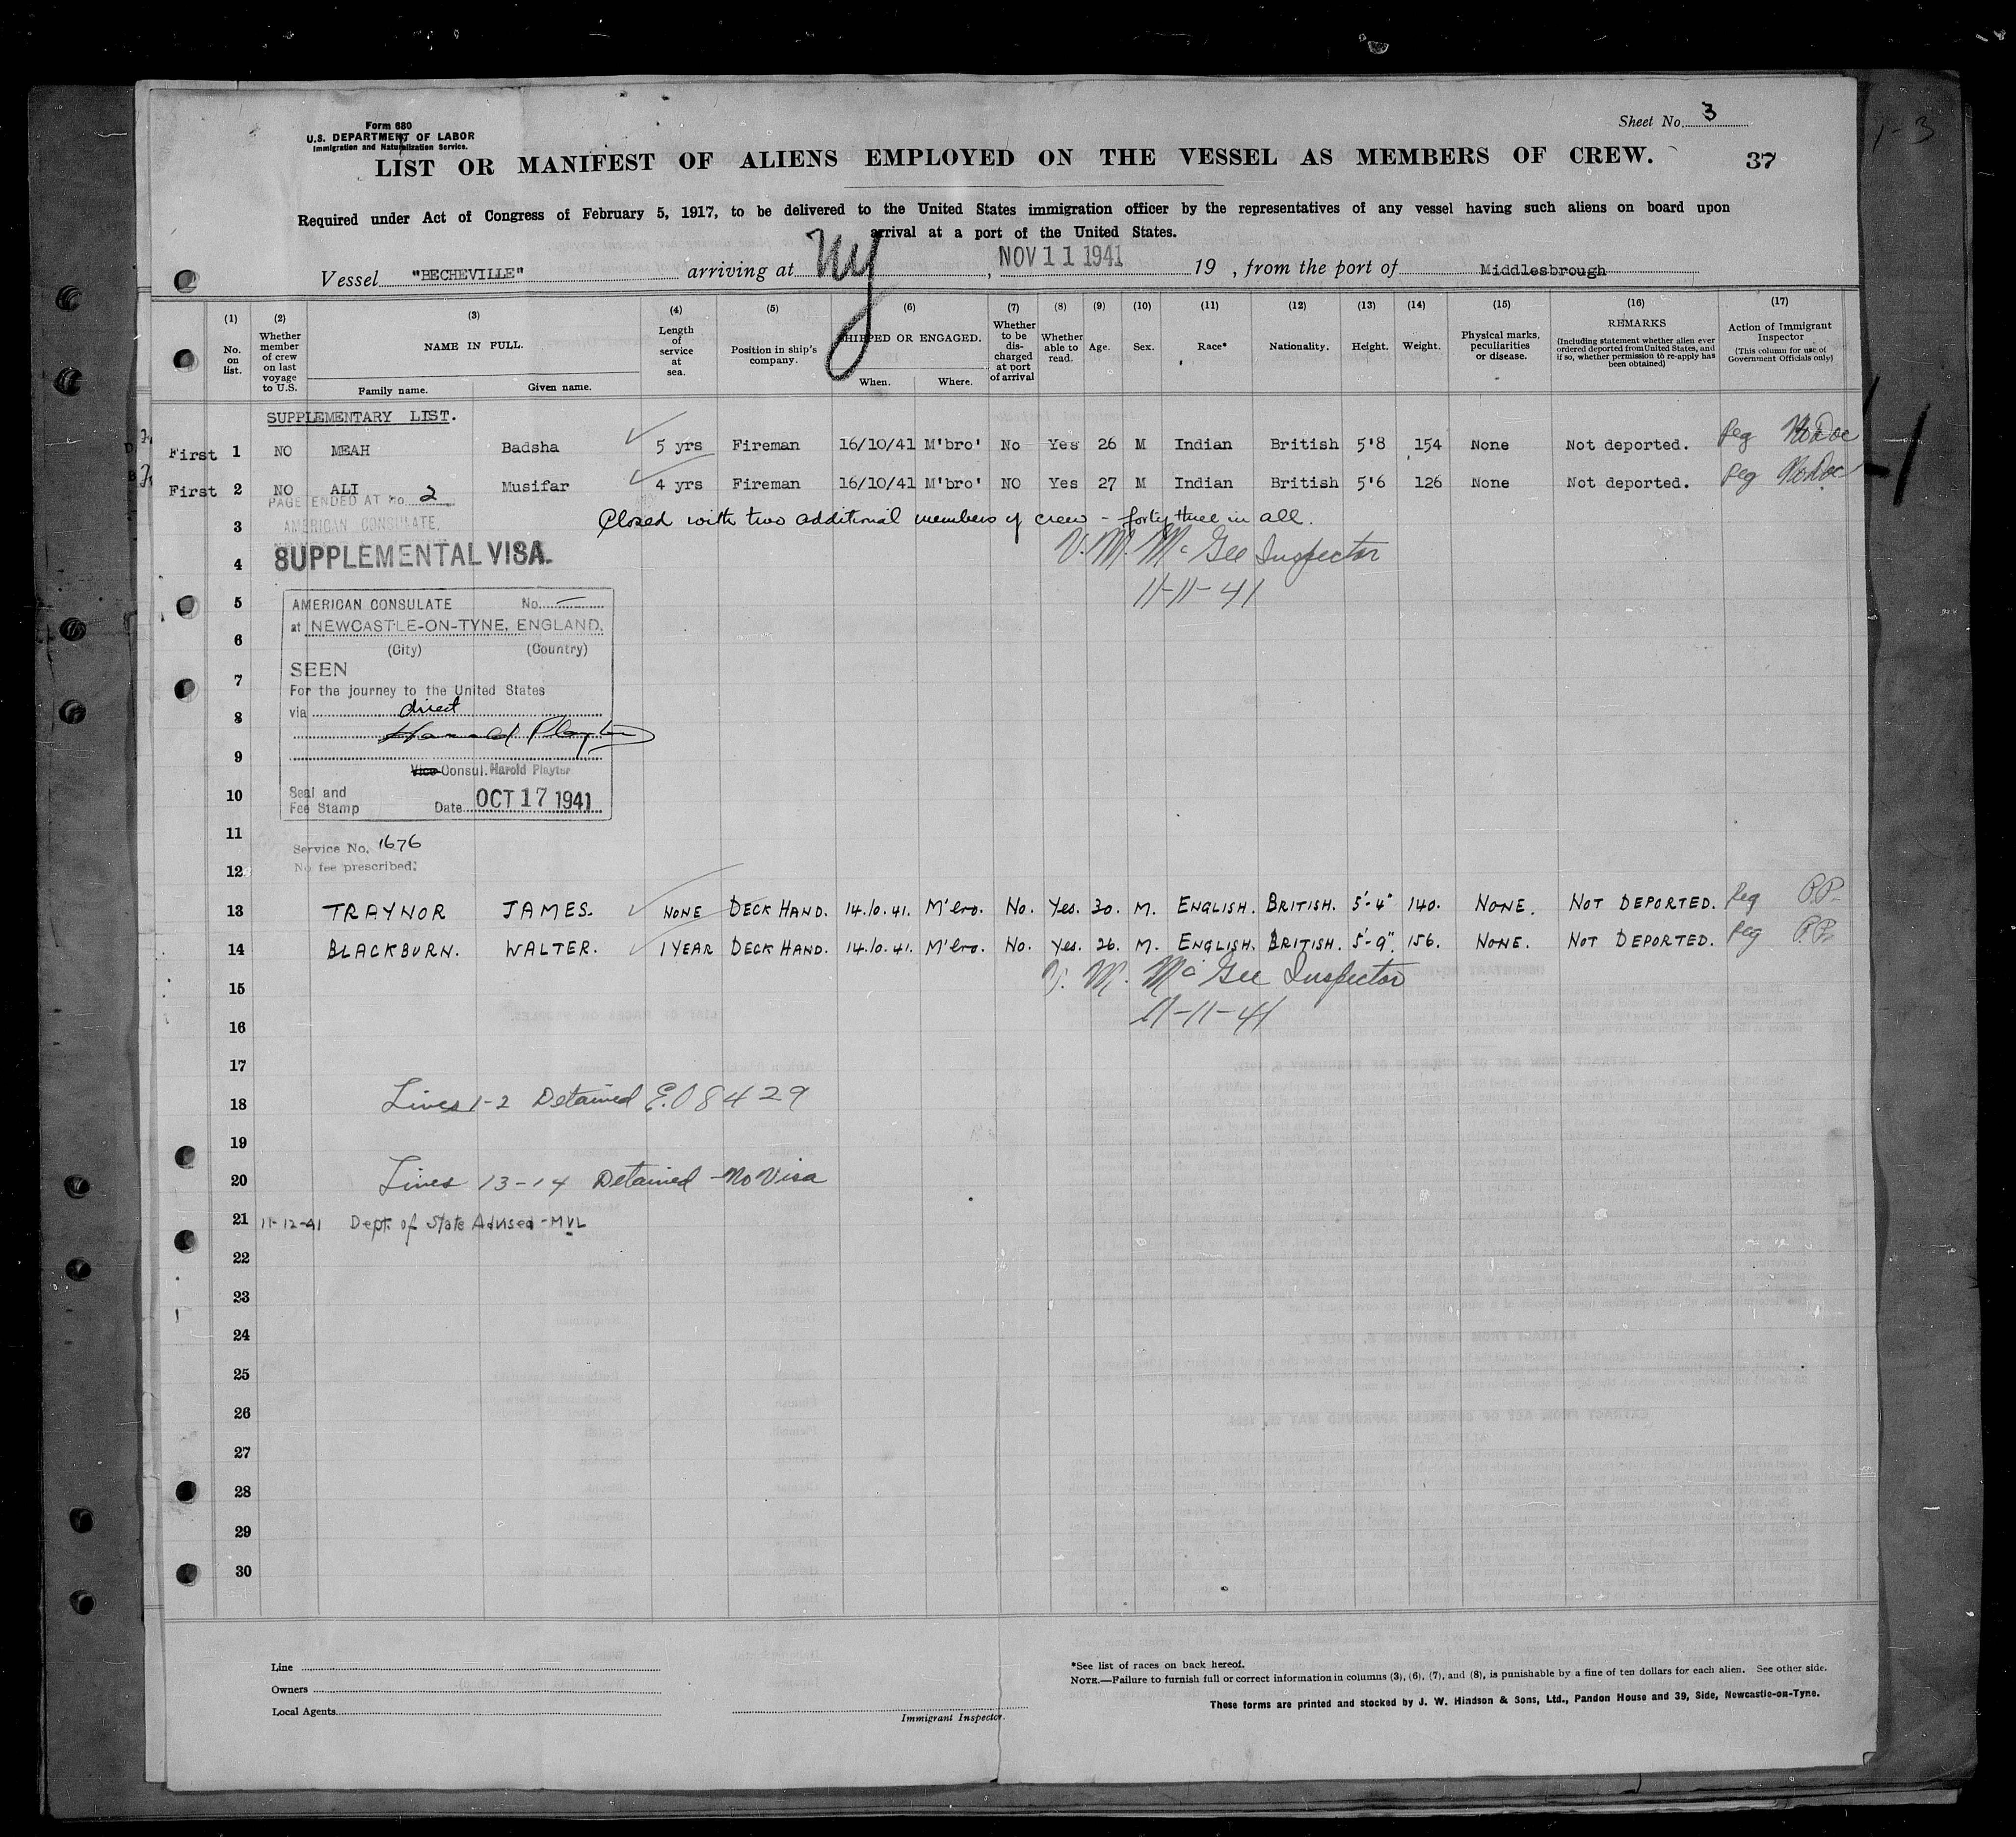 Form 680
U.S. DEPARTMENT OF LABOR
Immigration and Naturalization Service.
Sheet No. 3
1-3
LIST OR MANIFEST OF ALIENS EMPLOYED ON THE VESSEL AS MEMBERS OF CREW.
37
Required under Act of Congress of February 5, 1917, to be delivered to the United States immigration officer by the representatives of any vessel having such aliens on board upon
arrival at a port of the United States.
Vessel "BECHEVILLE" arriving at Ny, NOV 11 1941 19 , from the port of Middlesbrough
(1) No. on list.
(2) Whether member of crew on last voyage to U.S.
(3) NAME IN FULL. Family name. Given name.
(4) Length of service at sea.
(5) Position in ship's company.
(6) SHIPPED OR ENGAGED. When. Where.
(7) Whether to be discharged at port of arrival
(8) Whether able to read.
(9) Age.
(10) Sex.
(11) Race*
(12) Nationality.
(13) Height.
(14) Weight.
(15) Physical marks, peculiarities or disease.
(16) REMARKS (Including statement whether alien ever ordered deported from United States, and if so, whether permission to re-apply has been obtained)
(17) Action of Immigrant Inspector (This column for use of Government Officials only)
SUPPLEMENTARY LIST.
First 1 NO MEAH Badsha 5 yrs Fireman 16/10/41 M'bro' No Yes 26 M Indian British 5'8 154 None Not deported. Reg No Doc
First 2 NO ALI Musifar 4 yrs Fireman 16/10/41 M'bro' NO Yes 27 M Indian British 5'6 126 None Not deported. Reg No Doc
PAGE ENDED AT No. 2
3 AMERICAN CONSULATE. Closed with two additional members of crew - forty three in all.
4 SUPPLEMENTAL VISA. V. M. McGee Inspector
5 AMERICAN CONSULATE No. — 11-11-41
at NEWCASTLE-ON-TYNE, ENGLAND.
6 (City) (Country)
SEEN
7 For the journey to the United States
8 via direct
Harold Playter
9
Vice Consul. Harold Playter
10 Seal and Fee Stamp Date OCT 17 1941
11
Service No. 1676
12 No fee prescribed.
13 TRAYNOR JAMES. NONE DECK HAND. 14.10.41. M'bro. No. Yes. 30. M. ENGLISH. BRITISH. 5'-4" 140. NONE. NOT DEPORTED. Reg P.P.
14 BLACKBURN. WALTER. 1 YEAR DECK HAND. 14.10.41. M'bro. No. Yes. 26. M. ENGLISH. BRITISH. 5'-9". 156. NONE. NOT DEPORTED. Reg P.P.
15 V. M. McGee Inspector
16 11-11-41
17
18 Lines 1-2 Detained E.O 8429
19
20 Lines 13-14 Detained - No Visa
21 11-12-41 Dept. of State Advised - MVL
22
23
24
25
26
27
28
29
30
Line
Owners
Local Agents
Immigrant Inspector.
*See list of races on back hereof.
NOTE.—Failure to furnish full or correct information in columns (3), (6), (7), and (8), is punishable by a fine of ten dollars for each alien. See other side.
These forms are printed and stocked by J. W. Hindson & Sons, Ltd., Pandon House and 39, Side, Newcastle-on-Tyne.